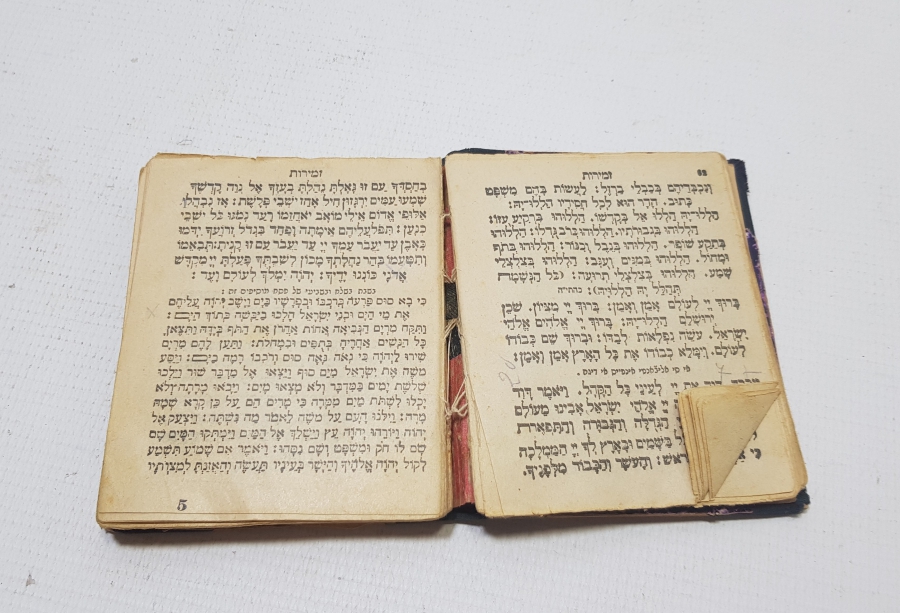 זמירות
וְנִכְבְּדֵיהֶם בְּכַבְלֵי בַרְזֶל: לַעֲשׂוֹת בָּהֶם מִשְׁפָּט
כָּתוּב. הָדָר הוּא לְכָל חֲסִידָיו הַלְלוּיָהּ:
הַלְלוּיָהּ הַלְלוּ אֵל בְּקָדְשׁוֹ. הַלְלוּהוּ בִּרְקִיעַ עֻזּוֹ:
הַלְלוּהוּ בִגְבוּרֹתָיו. הַלְלוּהוּ כְּרֹב גֻּדְלוֹ: הַלְלוּהוּ
בְּתֵקַע שׁוֹפָר. הַלְלוּהוּ בְּנֵבֶל וְכִנּוֹר: הַלְלוּהוּ בְּתֹף
וּמָחוֹל. הַלְלוּהוּ בְּמִנִּים וְעֻגָב: הַלְלוּהוּ בְּצִלְצְלֵי
שָׁמַע. הַלְלוּהוּ בְּצִלְצְלֵי תְרוּעָה: (כֹּל הַנְּשָׁמָה
תְּהַלֵּל יָהּ הַלְלוּיָהּ):
בָּרוּךְ יְיָ לְעוֹלָם אָמֵן וְאָמֵן: בָּרוּךְ יְיָ מִצִּיּוֹן. שֹׁכֵן
יְרוּשָׁלַםִ הַלְלוּיָהּ: בָּרוּךְ יְיָ אֱלֹהִים אֱלֹהֵי
יִשְׂרָאֵל. עֹשֵׂה נִפְלָאוֹת לְבַדּוֹ: וּבָרוּךְ שֵׁם כְּבוֹדוֹ
לְעוֹלָם. וְיִמָּלֵא כְבוֹדוֹ אֶת כָּל הָאָרֶץ אָמֵן וְאָמֵן:
דָּוִד אֶת יְיָ לְעֵינֵי כָּל הַקָּהָל. וַיֹּאמֶר דָּוִד
יְיָ אֱלֹהֵי יִשְׂרָאֵל אָבִינוּ מֵעוֹלָם
הַגְּדֻלָּה וְהַגְּבוּרָה וְהַתִּפְאֶרֶת
כִּי בַּשָּׁמַיִם וּבָאָרֶץ לְךָ יְיָ הַמַּמְלָכָה
רֹאשׁ: וְהָעֹשֶׁר וְהַכָּבוֹד מִלְּפָנֶיךָ.
זמירות
בְחַסְדְּךָ עַם זוּ גָּאָלְתָּ נֵהַלְתָּ בְעָזְּךָ אֶל נְוֵה קָדְשֶׁךָ
שָׁמְעוּ עַמִּים יִרְגָּזוּן חִיל אָחַז יֹשְׁבֵי פְּלָשֶׁת: אָז נִבְהֲלוּ
אַלּוּפֵי אֱדוֹם אֵילֵי מוֹאָב יֹאחֲזֵמוֹ רָעַד נָמֹגוּ כֹּל יֹשְׁבֵי
כְנָעַן: תִּפֹּל עֲלֵיהֶם אֵימָתָה וָפַחַד בִּגְדֹל זְרוֹעֲךָ יִדְּמוּ
כָּאָבֶן עַד יַעֲבֹר עַמְּךָ יְיָ עַד יַעֲבֹר עַם זוּ קָנִיתָ: תְּבִאֵמוֹ
וְתִטָּעֵמוֹ בְּהַר נַחֲלָתְךָ מָכוֹן לְשִׁבְתְּךָ פָּעַלְתָּ יְיָ מִקְּדָשׁ
אֲדֹנָי כּוֹנְנוּ יָדֶיךָ: יְהוָה יִמְלֹךְ לְעוֹלָם וָעֶד:
בשבת בשלח ובשביעי של פסח מוסיפים זה:
כִּי בָא סוּס פַּרְעֹה בְּרִכְבּוֹ וּבְפָרָשָׁיו בַּיָּם וַיָּשֶׁב יְהוָה עֲלֵיהֶם
אֶת מֵי הַיָּם וּבְנֵי יִשְׂרָאֵל הָלְכוּ בַיַּבָּשָׁה בְּתוֹךְ הַיָּם:
וַתִּקַּח מִרְיָם הַנְּבִיאָה אֲחוֹת אַהֲרֹן אֶת הַתֹּף בְּיָדָהּ וַתֵּצֶאןָ
כָל הַנָּשִׁים אַחֲרֶיהָ בְּתֻפִּים וּבִמְחֹלֹת: וַתַּעַן לָהֶם מִרְיָם
שִׁירוּ לַיהוָה כִּי גָאֹה גָּאָה סוּס וְרֹכְבוֹ רָמָה בַיָּם: וַיַּסַּע
מֹשֶׁה אֶת יִשְׂרָאֵל מִיַּם סוּף וַיֵּצְאוּ אֶל מִדְבַּר שׁוּר וַיֵּלְכוּ
שְׁלֹשֶׁת יָמִים בַּמִּדְבָּר וְלֹא מָצְאוּ מָיִם: וַיָּבֹאוּ מָרָתָה וְלֹא
יָכְלוּ לִשְׁתֹּת מַיִם מִמָּרָה כִּי מָרִים הֵם עַל כֵּן קָרָא שְׁמָהּ
מָרָה: וַיִּלֹּנוּ הָעָם עַל מֹשֶׁה לֵּאמֹר מַה נִּשְׁתֶּה: וַיִּצְעַק אֶל
יְהוָה וַיּוֹרֵהוּ יְהוָה עֵץ וַיַּשְׁלֵךְ אֶל הַמַּיִם וַיִּמְתְּקוּ הַמָּיִם שָׁם
שָׂם לוֹ חֹק וּמִשְׁפָּט וְשָׁם נִסָּהוּ: וַיֹּאמֶר אִם שָׁמוֹעַ תִּשְׁמַע
לְקוֹל יְהוָה אֱלֹהֶיךָ וְהַיָּשָׁר בְּעֵינָיו תַּעֲשֶׂה וְהַאֲזַנְתָּ לְמִצְוֹתָיו
5